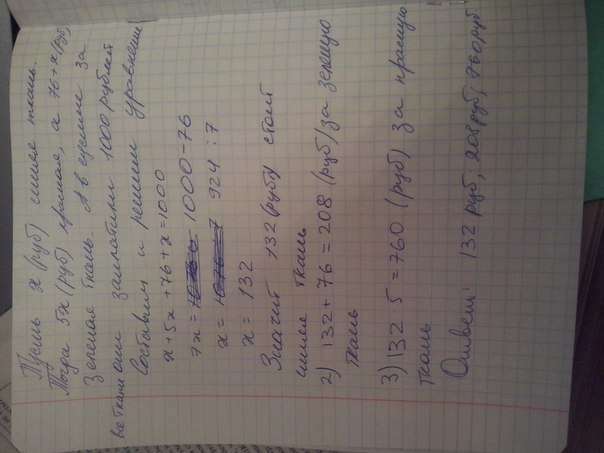 Пусть x (руб) синяя ткань.
Тогда 5x (руб) красная, а 76+x (руб)
Зеленая ткань. А в сумме за
все ткани они заплатили 1000 рублей
Составим и решим уравнение
x+5x+76+x=1000
7x = 1000-76
x = 924 : 7
x = 132
Значит 132 (руб) стоит
синяя ткань
2) 132+76=208 (руб) за зеленую
ткань
3) 132 5=760 (руб) за красную
ткань
Ответ: 132 руб, 208 руб, 860 руб